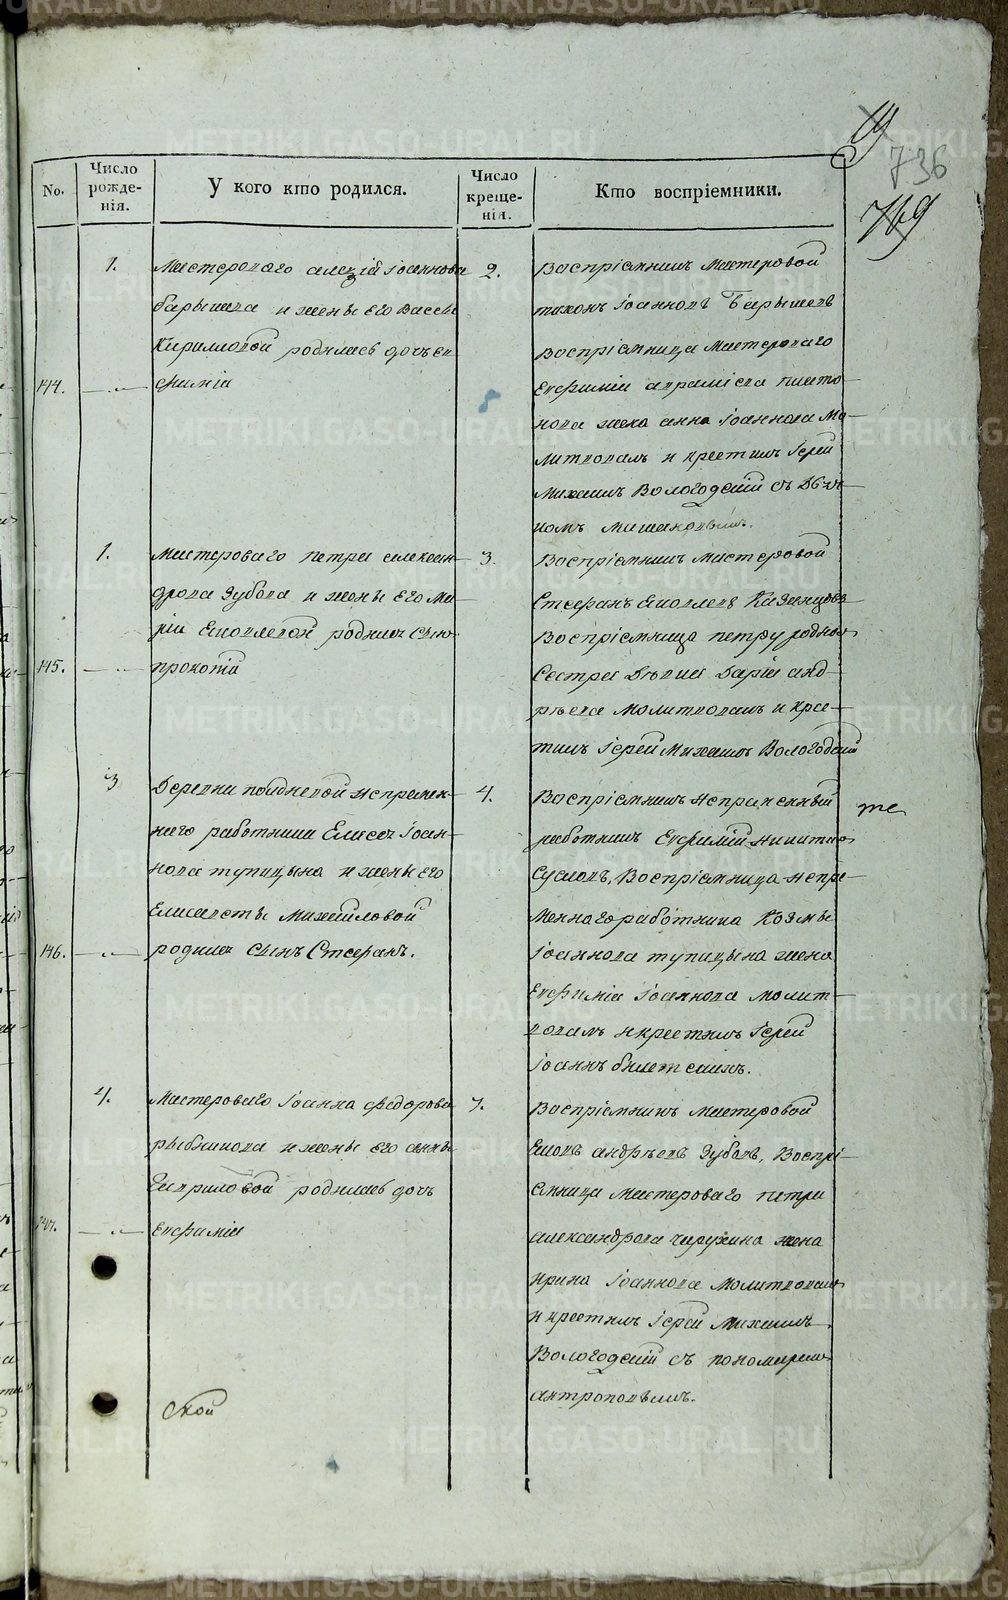 19
736
769
No.
Число рожденія.
У кого кто родился.
Число крещенія.
Кто воспріемники.
144.
1.
Мастероваго Алексія Іоаннова
барышева и жены его Вассы
Кирилловой родилась дочь ев
фимія
2.
Воспріемникъ Мастеровой
тихонъ Іоанновъ Барышевъ
Воспріемница Мастероваго
Евфимія
жена анна Іоаннова Мо
литвовалъ и крестилъ Іерей
Михаилъ Вологодскій съ Дья
номъ
145.
1.
Мастероваго петра александрова Зубова и жены Его Ма
ріи Іаковлевой родился сынъ
прокопій
3.
Воспріемникъ Мастеровой
Стефанъ Іаковлевъ Казанцовъ
Воспріемница петру родная
Сестра Дѣвка Дарія анд
рѣева Молитвовалъ и кре
тилъ Іерей Михаилъ Вологодскій
146.
3
Деревни полдневой непремен
наго работника Елисея Іоан
нова тупицына и жены его
Елисаветы Михайловой
родился сынъ Стефанъ.
4.
Воспріемникъ непременный
работникъ Евфимій никитин
Сусловъ, Воспріемница непре
меннаго работника Козмы
Іоаннова тупицына жена
Евфимія Іоаннова Молит
вовалъ и крестилъ Іерей
Іоаннъ
те
147.
4.
Мастероваго Іоанна федорова
рыбникова и жены Его анны
Гавриловой родилась дочь
Евфимія
7.
Воспріемникъ Мастеровой
Іаковъ андрѣевъ Зубовъ, Воспрі
емница Мастероваго петра
александрова жена
ирина Іоаннова Молитвовалъ
и крестилъ Іерей Михаилъ
Вологодскій съ пономаремъ
антроповымъ.
ской
METRIKI.GASO-URAL.RU